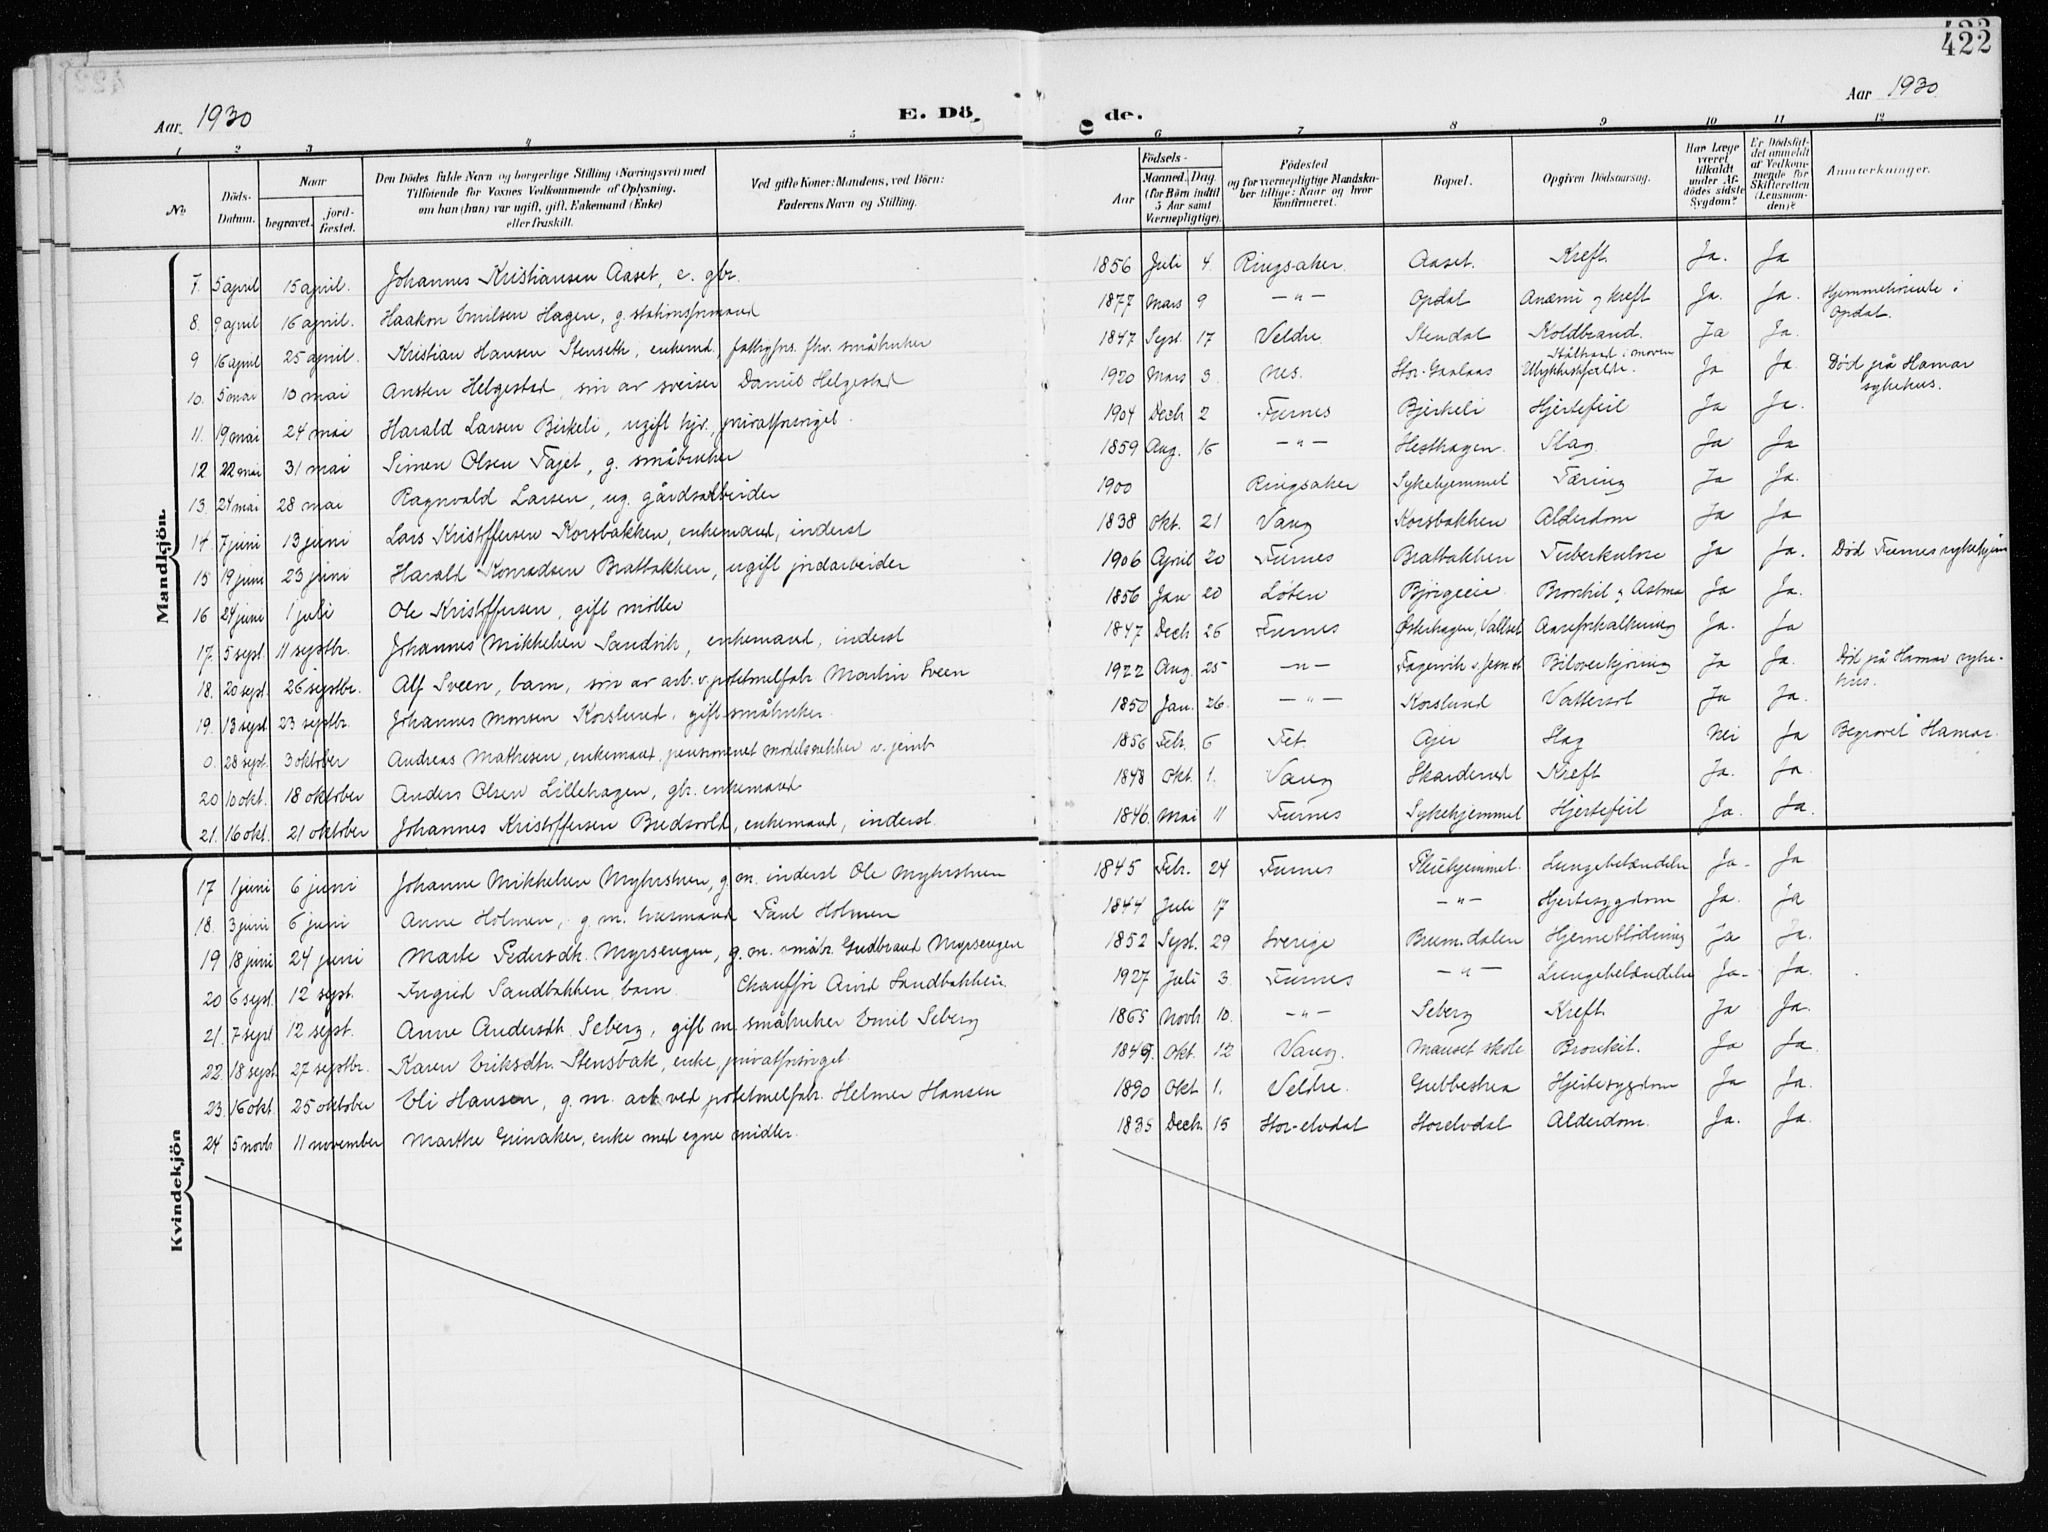 422
Aar 1930 E. Dö de. Aar 1930
1 2 3 4 5 6 7 8 9 10 11 12
No Döds-Datum. Naar begravet. jord-fæstet. Den Dödes fulde Navn og borgerlige Stilling (Næringsvei) med Tilföiende for Voxnes Vedkommende af Oplysning, om han (hun) var ugift, gift, Enkemand (Enke) eller fraskilt. Ved gifte Koner: Mandens, ved Börn: Faderens Navn og Stilling. Födsels- Aar Maaned. Dag. (for Börn indtil 5 Aar samt Værnepligtige). Födested og for værnepligtige Mandskaber tillige: Naar og hvor konfirmeret. Bopæl. Opgiven Dödsaarsag. Har Læge været tilkaldt under Afdödes sidste Sygdom? Er Dödsfaldet anmeldt af Vedkommende for Skifteretten (Lensmanden)? Anmerkninger.
Mandkjön.
7. 5 april 15 april. Johannes Kristiansen Aaset, e. gbr. 1856 Juli 4. Ringsaker. Aaset. Kreft. Ja. Ja
8. 9 april 16 april. Haakon Emilsen Hagen, g. stationsformand 1877 Mars 9 —"— Opdal Anæmi og kreft Ja. Ja. Hjemmehörende i Opdal.
9 16 april 25 april. Kristian Hansen Stenseth, enkemd, fathgfors. fhv. småbruker 1847 Sept. 17 Veldre Stendal Koldbrand. Ja Ja.
10. 5 mai 10 mai Ansten Helgestad, sön av sveiser Daniel Helgestad 1920 Mars 3. Nes. Stor-Gaalaas Ståltraad i maven Ulykkestfælde. Ja Ja. Død på Hamar sykehus.
11. 19 mai 24 mai Harald Larsen Birkeli, ugift hjv., privatforsörget. 1904 Decb 2 Furnes Bjerkeli Hjertefeil Ja Ja.
12 22 mai 31 mai Simen Olsen Fajet, g. småbruker 1859 Aug. 16 —"— Hesthagen. Slag Ja Ja
13. 24 mai 28 mai Ragnvald Larsen, ug. gårdsarbeider 1900 Ringsaker Sykehjemmet Tæring Ja Ja.
14. 7 juni 13 juni Lars Kristoffersen Korsbakken, enkemand, inderst 1838 Okt. 21 Vang Korsbakken Alderdom Ja Ja
15 19 juni 23 juni Harald Konradsen Bratbakken, ugift jordarbeider 1906 April 20 Furnes Bratbakken Tuberkulose Ja Ja. Död Furnes sykehjem
16 24 juni 1 juli Ole Kristoffersen, gift möller 1856 Jan 20 Löten Bjørgeie Bronkit og Astma Ja Ja.
17. 5 sept. 11 septbr. Johannes Mikkelsen Sandvik, enkemand, inderst 1847 Decb 26 Furnes Østerhagen, Vallset Aareforkalkning Ja. Ja
18. 20 sept. 26 septbr. Alf Sveen, barn, sön av arb. v. potetmelfabr. Martin Sveen 1922 Aug. 25 —"— Fagervik v. Jesnes Biloverkjöring Ja Ja. Död på Hamar sykehus.
19. 13 sept 23 septbr. Johannes Monsen Korslund, gift småbruker. 1850 Jan. 26. —"— Korslund Vattersot Ja Ja.
0. 28 sept. 3 oktober Andreas Mathisen, enkemand, pensioneret modelsnekker v. jernb. 1856 Feb. 6 Fet. Ajer Slag Nei Ja Begravet Hamar.
20 10 okt. 18 oktober Anders Olsen Lillehagen, gbr. enkemand 1848 Okt. 1. Vang Skarderud Kreft Ja. Ja.
21. 16 okt. 21 oktober Johannes Kristoffersen Budsvold, enkemand, inderst. 1846 Mai 11 Furnes Sykehjemmet Hjertefeil Ja. Ja.
Kvindekjön
17 1 juni 6 juni Johanne Mikkelsen Myhrstuen, g. m. inderst Ole Myhrstuen 1845 Febr. 24 Furnes Pleiehjemmet. Lungebetændelse Ja. Ja
18. 3 juni 6 juni Anne Holmen, g. m. husmand Paul Holmen 1844 Juli 17 —"— Hjertesygdom Ja. Ja
19 18 juni 24 juni Marte Pedersdt. Myrsengen, g. m. småbr. Gudbrand Myrsengen 1852 Sept. 29 Sverige Brumdalen Hjerneblödning Ja Ja.
20 6 sept. 12 sept. Ingrid Sandbakken, barn. Chaufför Arvid Sandbakken. 1927 Juli 3. Furnes —"— Lungebetændelse Ja. Ja.
21. 7 sept 12 sept. Anne Andersdt. Seberg, gift m. småbruker Emil Seberg 1865 Novb 10. —"— Seberg Kreft Ja Ja.
22. 18 sept. 27 septbr. Karen Eriksdtr. Stensbak, enke, privatforsörget. 1849. Okt. 12 Vang. Mauset skole Bronkit. Ja Ja.
23. 16 okt. 25 oktober Eli Hansen, g. m. arb. ved potetmelfabr. Helmer Hansen 1890 Okt 1. Veldre. Gubbestua Hjertesygdom Ja Ja.
24 5 novb 11 november Marthe Grinaker, enke med egne midler. 1835 Decb. 15 Stor-elvdal Storelvdal Alderdom. Ja. Ja.